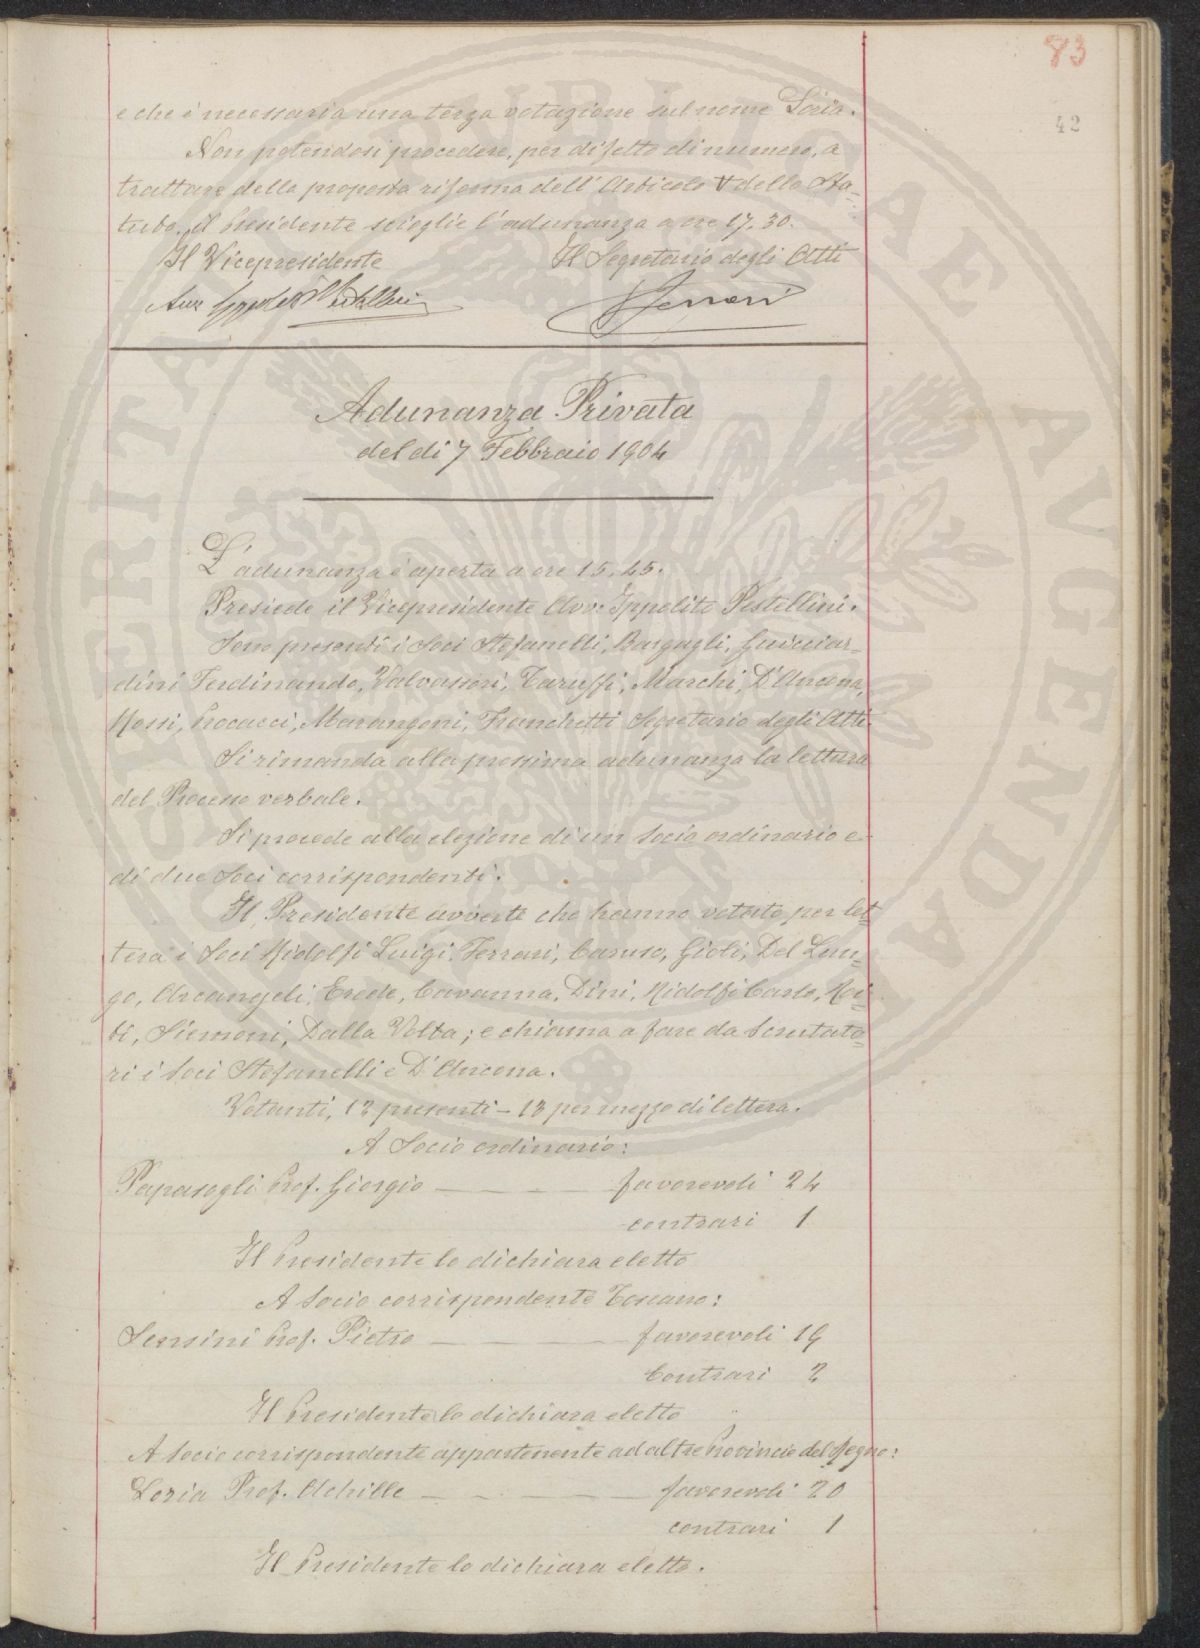 73
42
e che è necessaria una terza votazione sul nome Loria.
Non potendosi procedere, per difetto di numero, a
trattare della proposta riforma dell'Articolo V dello Sta-
tuto, il Presidente scioglie l'adunanza a ore 17.30.
Il Vicepresidente Il Segretario degli Atti
Avv Ippolito Pestellini Ferrari
Adunanza Privata
del dì 7 Febbraio 1904
L'adunanza è aperta a ore 15.45.
Presiede il Vicepresidente Avv. Ippolito Pestellini.
Sono presenti i Soci Stefanelli, Bargagli, Guicciar-
dini Ferdinando, Valvassori, Taruffi, Marchi, D'Ancona,
Rossi, Procacci, Marangoni, Franchetti Segretario degli Atti.
Si rimanda alla prossima adunanza la lettura
del Processo verbale.
Si procede alla elezione di un Socio ordinario e
di due Soci corrispondenti.
Il Presidente avverte che hanno votato per let-
tera i Soci Ridolfi Luigi, Ferrari, Caruso, Gioli, Del Lun-
go, Arcangeli, Erede, Cavanna, Dini, Ridolfi Carlo, Roi-
ti, Siemoni, Dalla Volta; e chiama a fare da Scrutato-
ri i Soci Stefanelli e D'Ancona.
Votanti, 12 presenti – 13 per mezzo di lettera.
A Socio ordinario:
Papasogli Prof. Giorgio favorevoli 24
contrari 1
Il Presidente lo dichiara eletto
A Socio corrispondente Toscano:
Sensini Prof. Pietro favorevoli 19
Contrari 2
Il Presidente lo dichiara eletto
A Socio corrispondente appartenente ad altre Provincie del Regno:
Loria Prof. Achille favorevoli 20
contrari 1
Il Presidente lo dichiara eletto.
PUBLICAE AUGENDAE